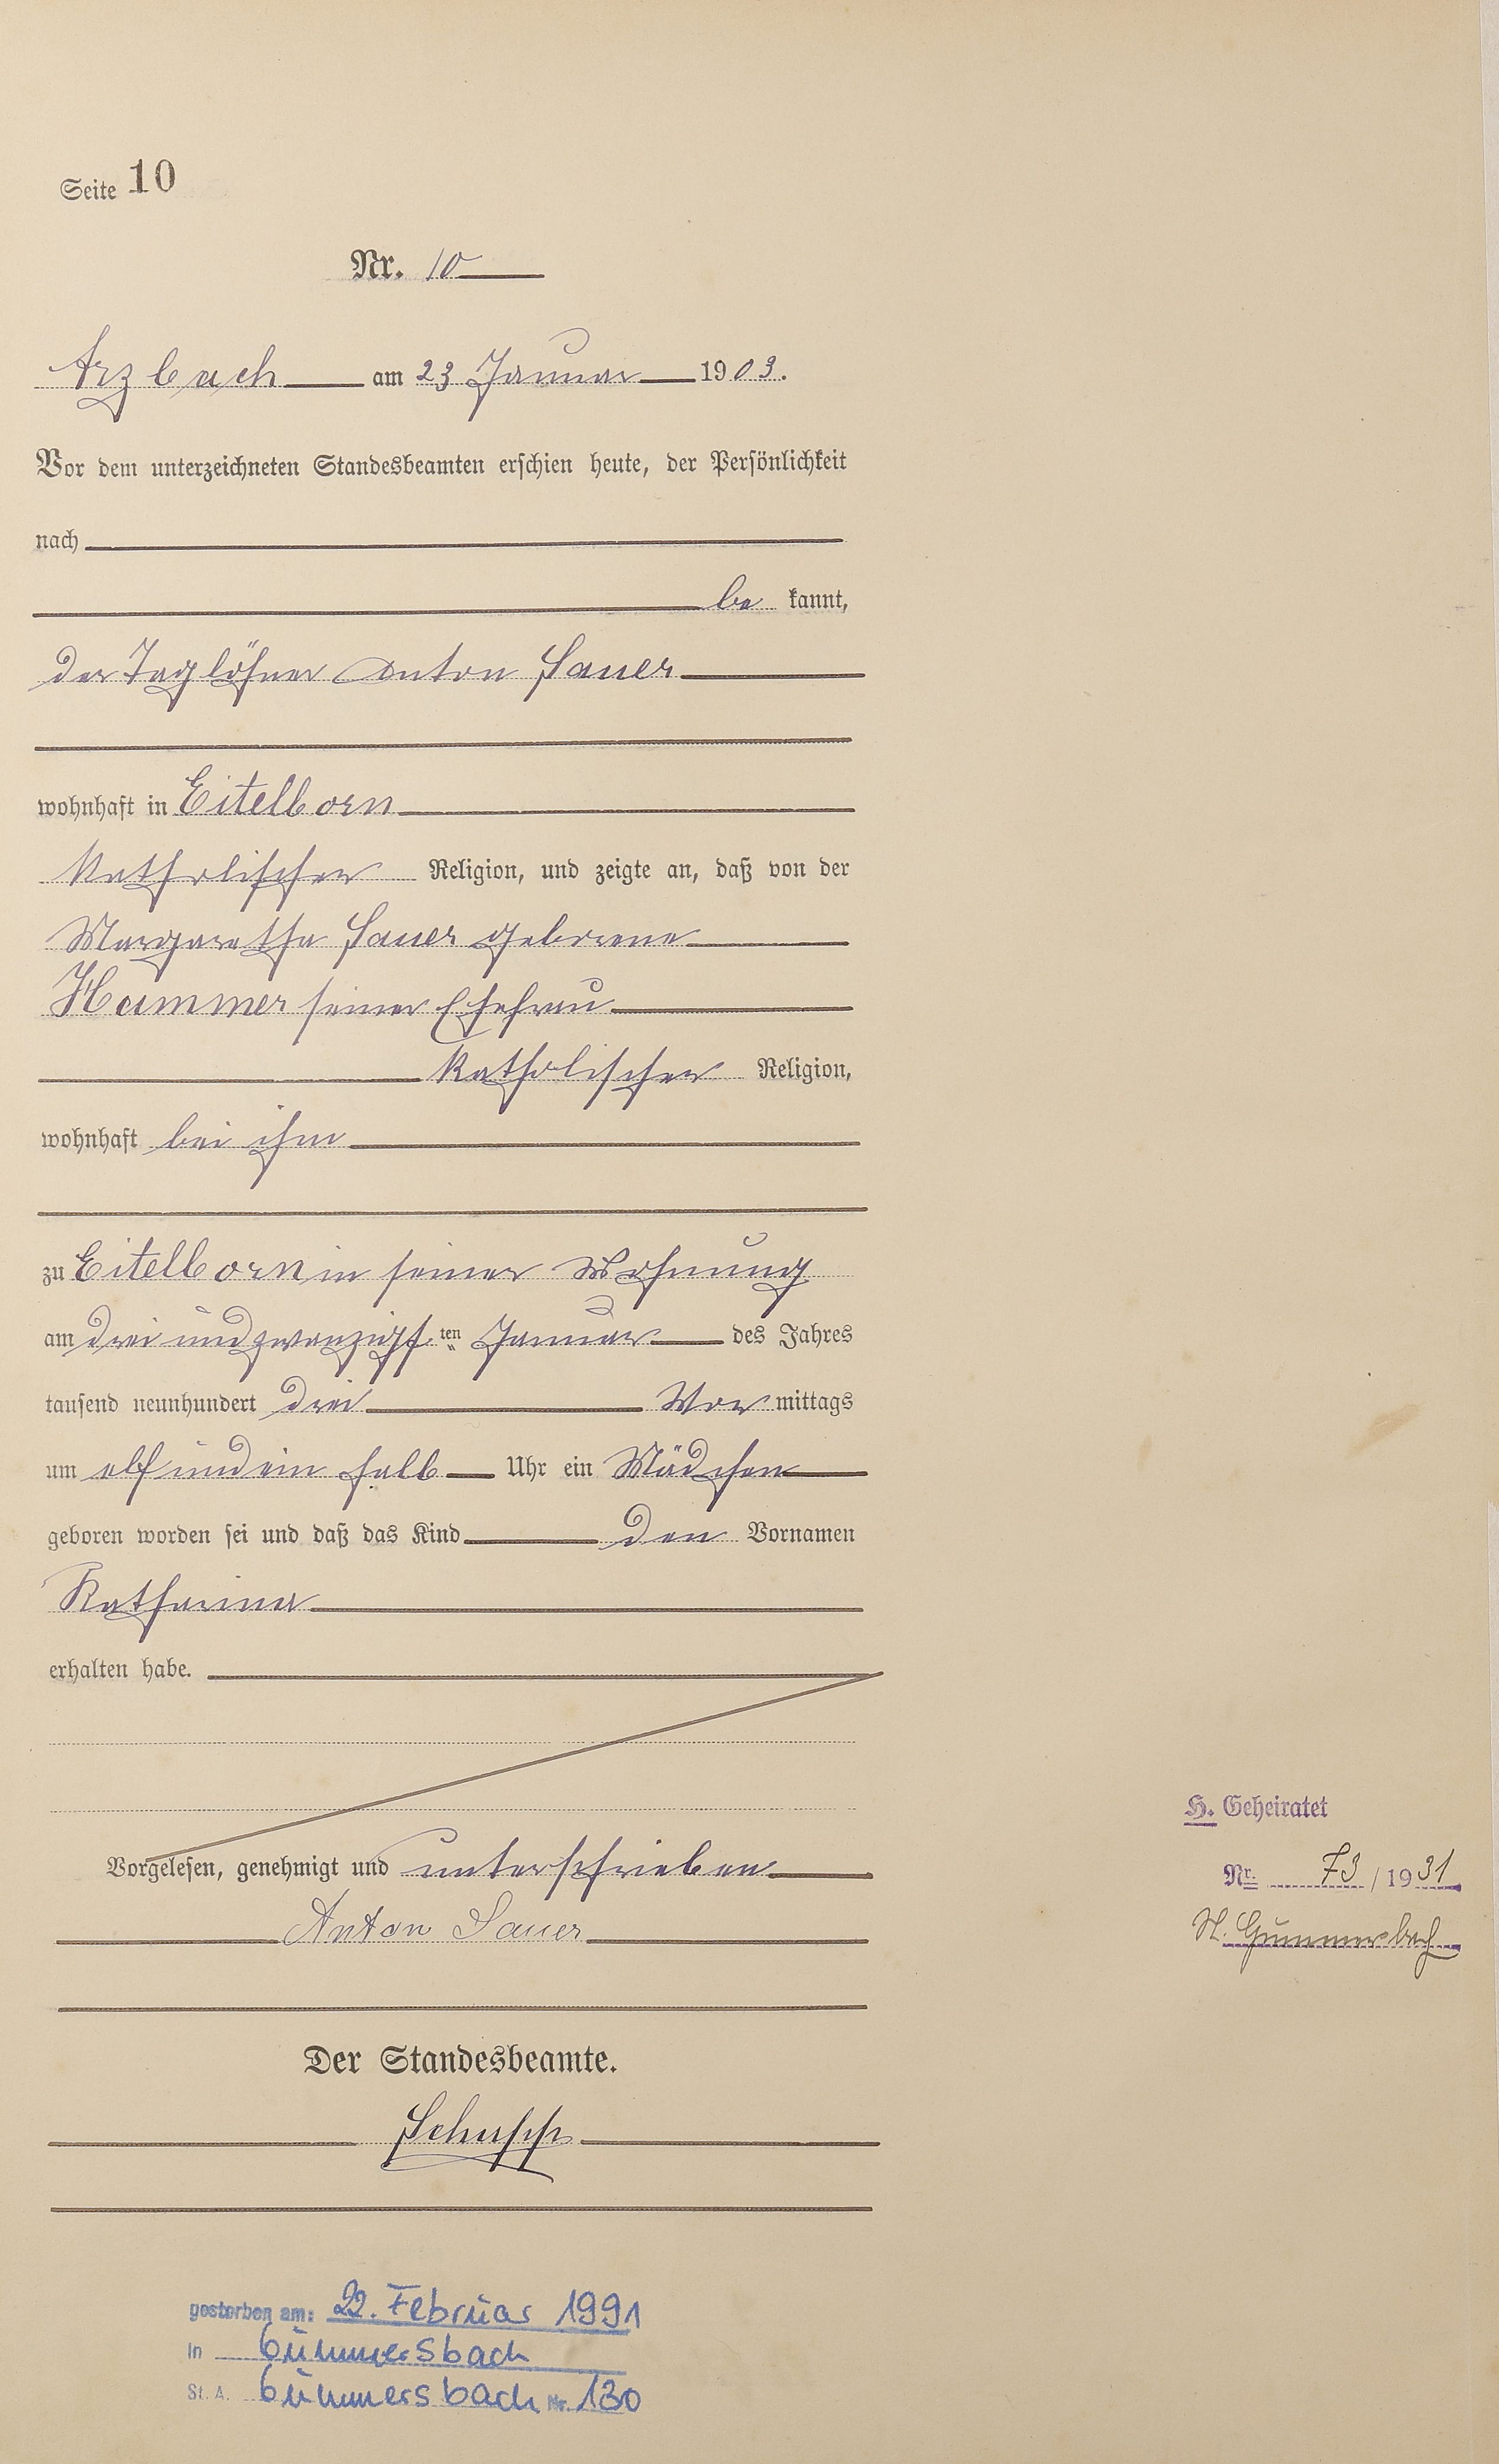 Seite 10
Nr. 10
Arzbach am 23 Januar 1903.
Vor dem unterzeichneten Standesbeamten erschien heute, der Persönlichkeit
nach
be kannt,
der Taglöhner Anton Sauer
wohnhaft in Eitelborn
katholischer Religion, und zeigte an, daß von der
Margaretha Sauer geborene
Hammer seiner Ehefrau
katholischer Religion,
wohnhaft bei ihm
zu Eitelborn in seiner Wohnung
am drei und zwanzigsten Januar des Jahres
tausend neunhundert drei Vor mittags
um elf und ein halb Uhr ein Mädchen
geboren worden sei und daß das Kind den Vornamen
Katharina
erhalten habe.
Vorgelesen, genehmigt und unterschrieben
Anton Sauer
Der Standesbeamte.
Schupp
H. Geheiratet
Nr. 73/1931
St. Gummersbach
gestorben am: 22. Februar 1991
in Gummersbach
St. A. Gummersbach Nr. 130